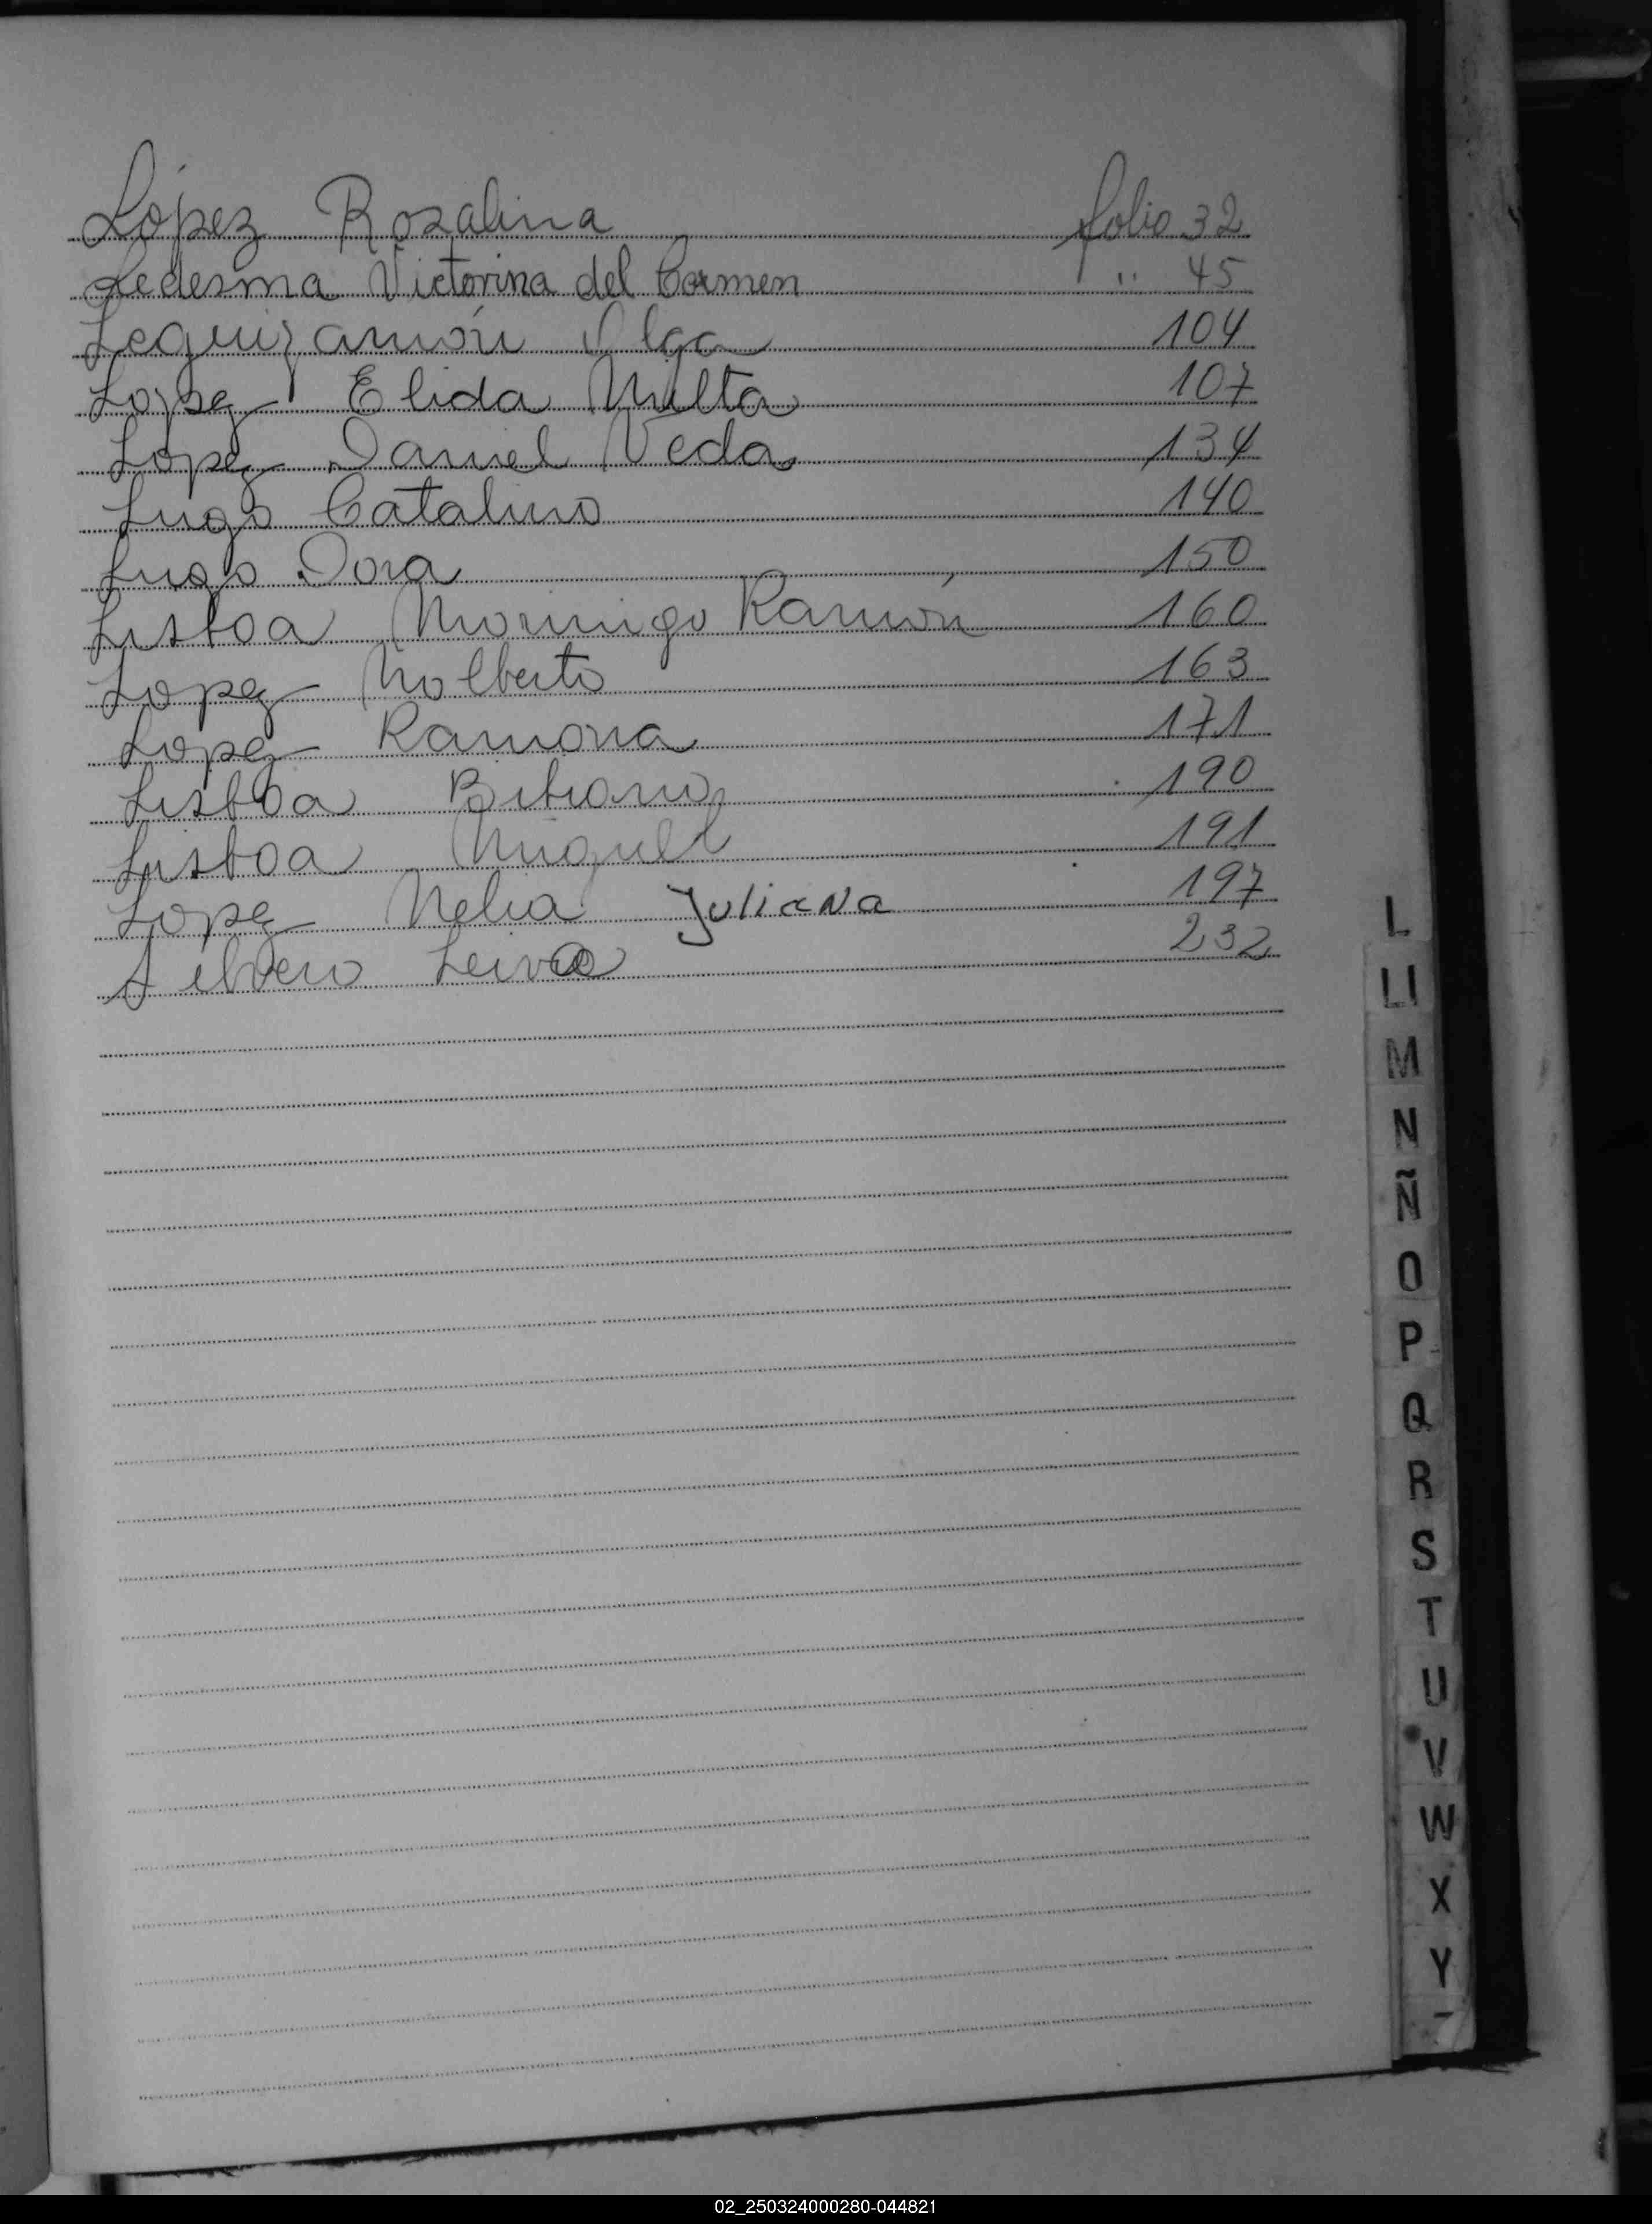 López Rosalina folio 32
Ledesma Victorina del Carmen " 45
Leguizamón Olga 104
Lopez Elida Milta 107
Lopez Daniel Neda 134
Lugo Catalino 140
Lugo Dora 150
Lisboa Domingo Ramón 160
Lopez Nolberto 163
Lopez Ramona 171
Lisboa Bibiano 190
Lisboa Miguel 191
Lopez Nelia Juliana 197
Silvero Leiva 232
L
LI
M
N
Ñ
O
P
Q
R
S
T
U
V
W
X
Y
02_250324000280-044821